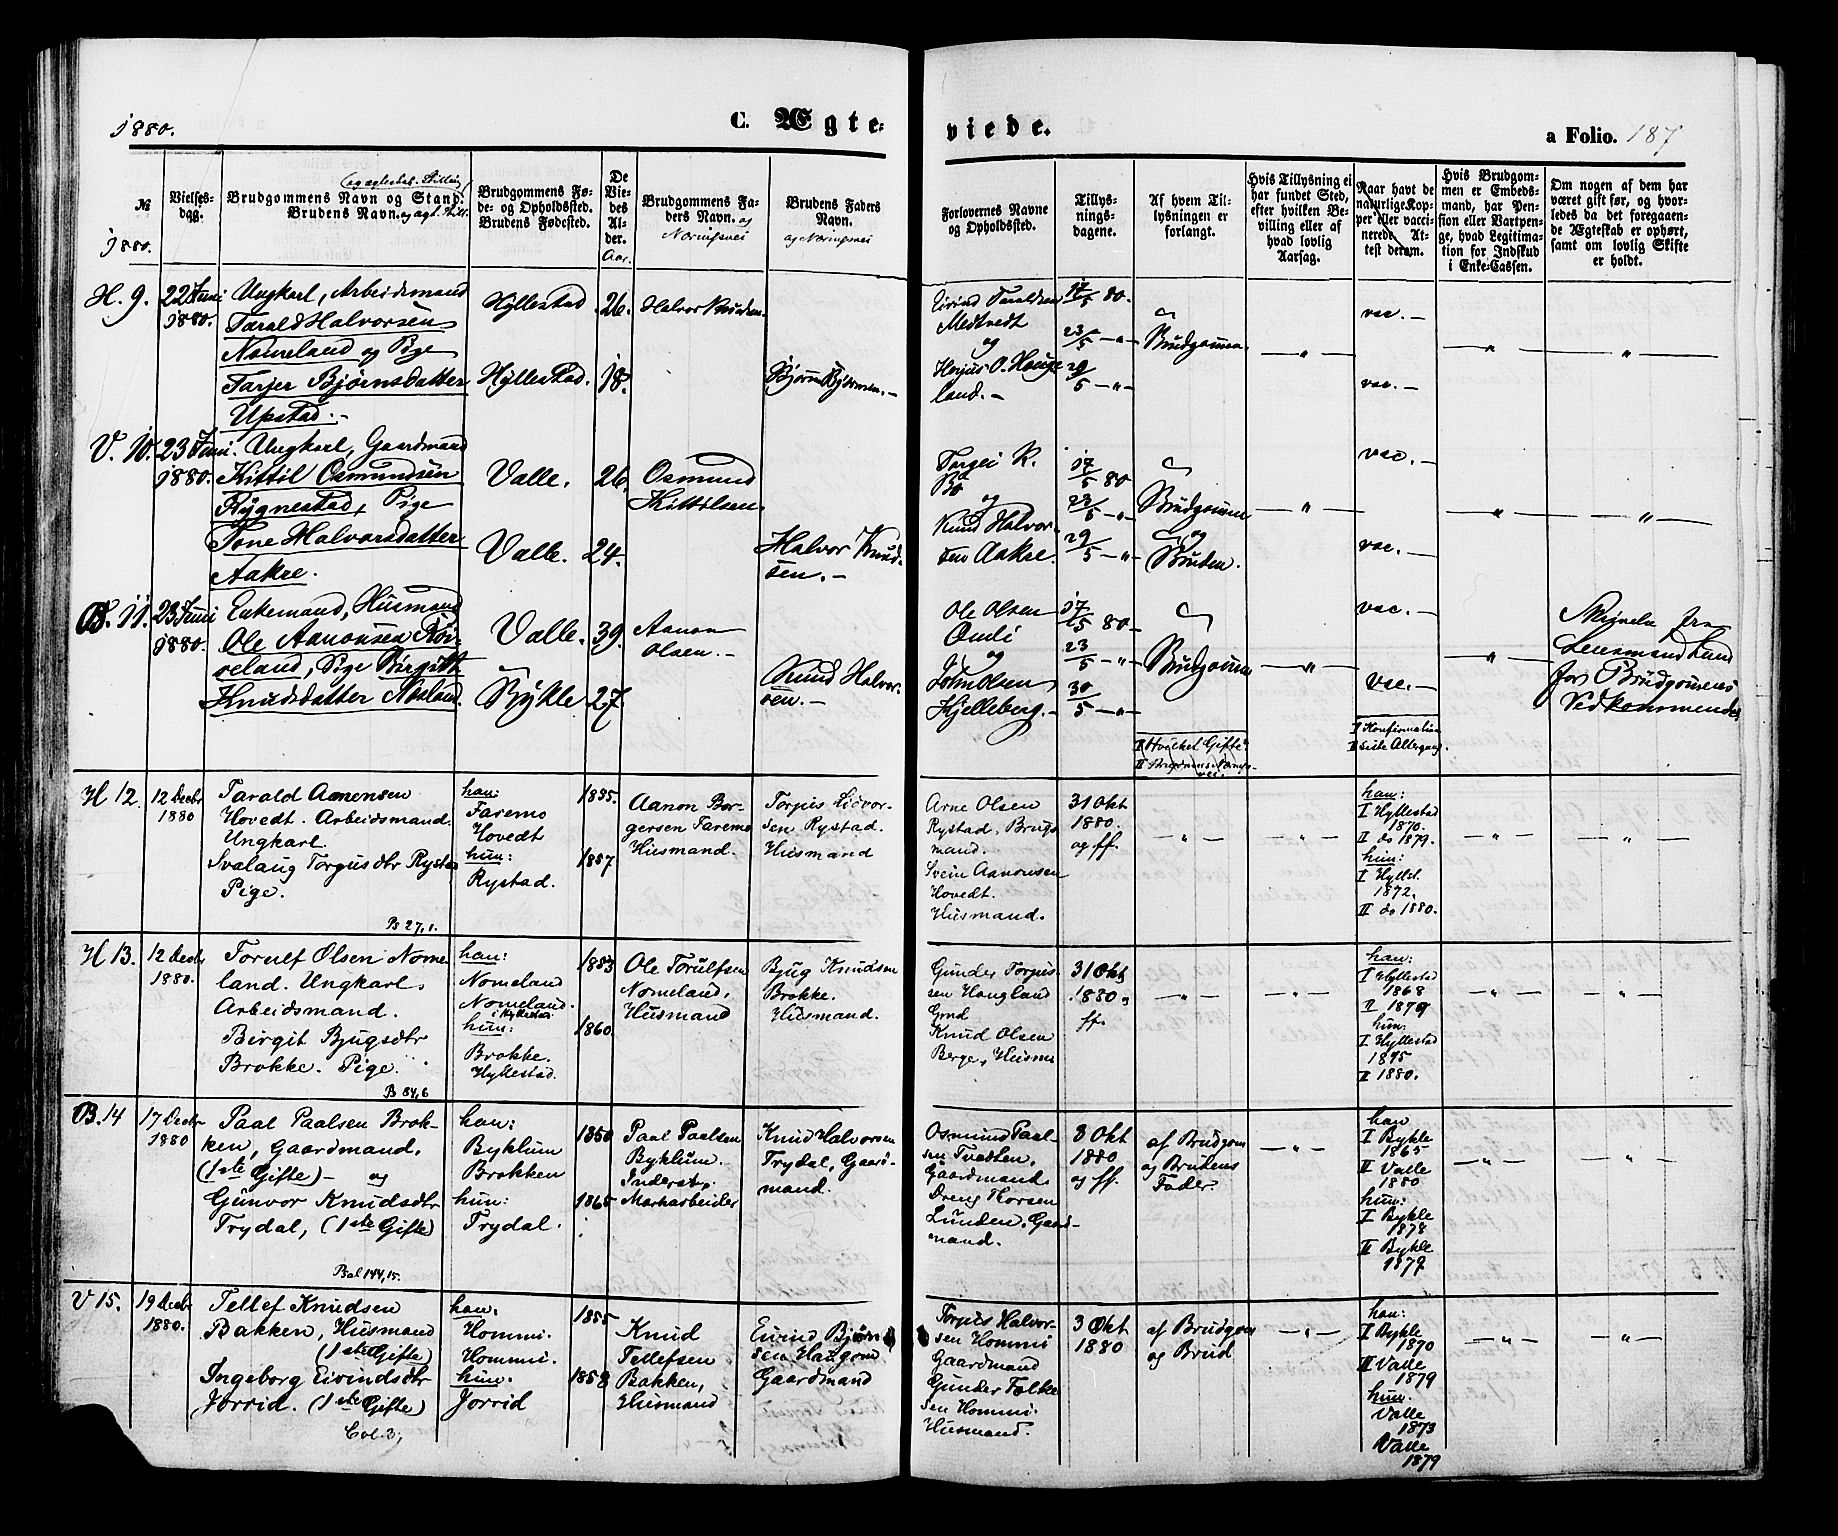 1880.
C. Ægte-
viede.
a Folio. 187
№
1880.
Vielses-
dag.
(og egteskab. Stilling)
Brudgommens Navn og Stand.
Brudens Navn. og
Brudgommens Fø-
de- og Opholdssted.
Brudens Fødested.
De
Vie-
des
Al-
der.
Aar.
Brudgommens Fa-
ders Navn. og
Næringsvei
Brudens Faders
Navn.
og Næringsvei
Forlovernes Navne
og Opholdssted.
Tillys-
nings-
dagene.
Af hvem Til-
lysningen er
forlangt.
Hvis Tillysning ei
har fundet Sted,
efter hvilken Be-
villing eller af
hvad lovlig
Aarsag.
Naar havt de
naturlige Kop-
per eller vacci-
nerede, At-
test derom.
Hvis Brudgom-
men er Embeds-
mand, har Pen-
sion eller Vartpen-
ge, hvad Legitima-
tion for Indskud
i Enke-Cassen.
Om nogen af dem har
været gift før, og hvor-
ledes da det foregaaen-
de Ægteskab er ophørt,
samt om lovlig Skifte
er holdt.
H. 9.
22 Juni
1880.
Ungkarl, Arbeidsmand
Tarald Halvorsen
Nomeland og Pige
Tarjer Bjørnsdatter
Upstad.-
Hyllestad
Hyllestad.
26.
18.
Halvor Knudsen.
Bjørn Bjørnsen.-
Eivind Taraldsen
Medtvedt
og
Herjus O. Hauge
land.-
17/5 80.
23/5 — " —
29/5 — " —
Brudgommen.
— " —
vac. —
vac. —
— " —
"
V. 10.
23 Juni
1880.
Ungkarl, Gaardmand
Kittil Osmundsen
Rygnestad, Pige
Tone Halvorsdatter
Aakre.
Valle.
Valle.
26.
24.
Osmund
Kittilsen.
Halvor Knud-
sen.-
Torgei K.
Bø
og
Knud Halvor-
sen Aakre.
17/5 80
23/5 — " —
29/5 — " —
Brudgommen
og
Bruden.
— " —
vac. —
vac. —
— " —
— " —
B. 11.
23 Juni
1880.
Enkemand, Husmand
Ole Aanonsen Flø-
veland, Pige Birgitt
Knudsdatter Nesland.
Valle.
Bykle
39.
27.
Aanon
Olsen.-
Knud Halvor-
sen.-
Ole Olsen
Omli
og
John Olsen
Kjelleberg.-
17/5 80-
23/5 — " —
30/5 — " —
Brudgommen
— " —
vac. —
vac. —
— " —
Skrivelse fra
Lensmand Lund
for Brudgommens
Vedkommende
I Hvilket Gifte
I Konfirmation
II sidste Altergang.
H 12.
12 Decbr
1880
Tarald Aanensen
Hovedt. Arbeidsmand.
Ungkarl.
Svalaug Torgusdtr Rystad
Pige.
B 27,1.
han:
Faremo
Hovedt
hun:
Rystad.
1855.
1857
Aanon Bor-
gersen Faremo
Husmand.
Torgus Lidvor-
sen Rystad.
Husmand
Arne Olsen
Rystad, Brugs
mand.
Svein Aanonsen
Hovedt.
Husmand.
31 Okt
1880.
og ff.
— " —
— " —
han:
I Hyllestad
1870.
II do 1879.
hun:
I Hyllst.
1872.
II do 1880.
— " —
— " —
H 13.
12 Decbr
1880.
Torulf Olsen Nome
land. Ungkarl.
Arbeidsmand.
Birgit Bjugsdtr
Brokke. Pige.
B 84,6
han:
Nomeland
Nomeland.
i Hyllestad
hun:
Brokke.
Hyllestad.
1853
1860
Ole Torulfsen
Nomeland,
Husmand
Bjug Knudsen
Brokke.
Husmand.
Gunder Torgus-
sen Haugland
Grnd
Knud Olsen
Berge, Husm
31 Okt
1880 og
ff.
— " —
— " —
han:
I Hyllestad
1868
II 1879
hun:
I Hyllestad
1875
II 1880.
— " —
— " —
B. 14
17 Decbr
1880
Paal Paalsen Brok-
ken, Gaardmand.
(1ste Gifte) — og
Gunvor Knudsdtr
Trydal, (1ste Gifte)
Bal 144,15.
han:
Byklum
Brokken
hun:
Trydal.
1850
1865
Paal Paalsen
Byklum.
Inderst,
Markarbeider
Knud Halvorsen
Trydal, Gaard-
mand.
Osmund Paal-
sen Tvedten,
Gaardmand.
Dreng Thorsen
Lunden, Gaard-
mand.
3 Okt
1880
og ff.
af Brudgom
og Brudens
Fader.
— " —
han
I Bykle
1865
II Valle
1880
hun:
I Bykle
1878
II Bykle
1879
— " —
— " —
V 15.
19 Decbr
1880.
Tellef Knudsen
Bakken, Husmand
(1ste Gifte)
Ingeborg Eivindsdtr
Jorrid. (1ste Gifte)
Col. 3,
han:
Hommi.
Hommi.
hun.
Jorrid
1855
1858
Knud
Tellefsen
Bakken,
Husmand
Eivind Bjørn
sen Haugom
Gaardmand
Torgus Halvor-
sen Hommi
Gaardmand
Gunder Folke
sen Hommi.
Husmand.
3 Okt
1880
af Brudgom
og Brud
— " —
han:
I Bykle
1870
II Valle
1879
hun.
Valle
1873
Valle
1879
— " —
— " —